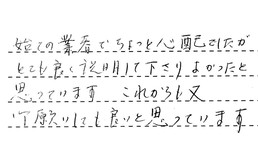 始ての業者でちょっと心配でしたが
とても良く説明して下さりよかったと
思っています これからも又
お願いしても良いと思っています